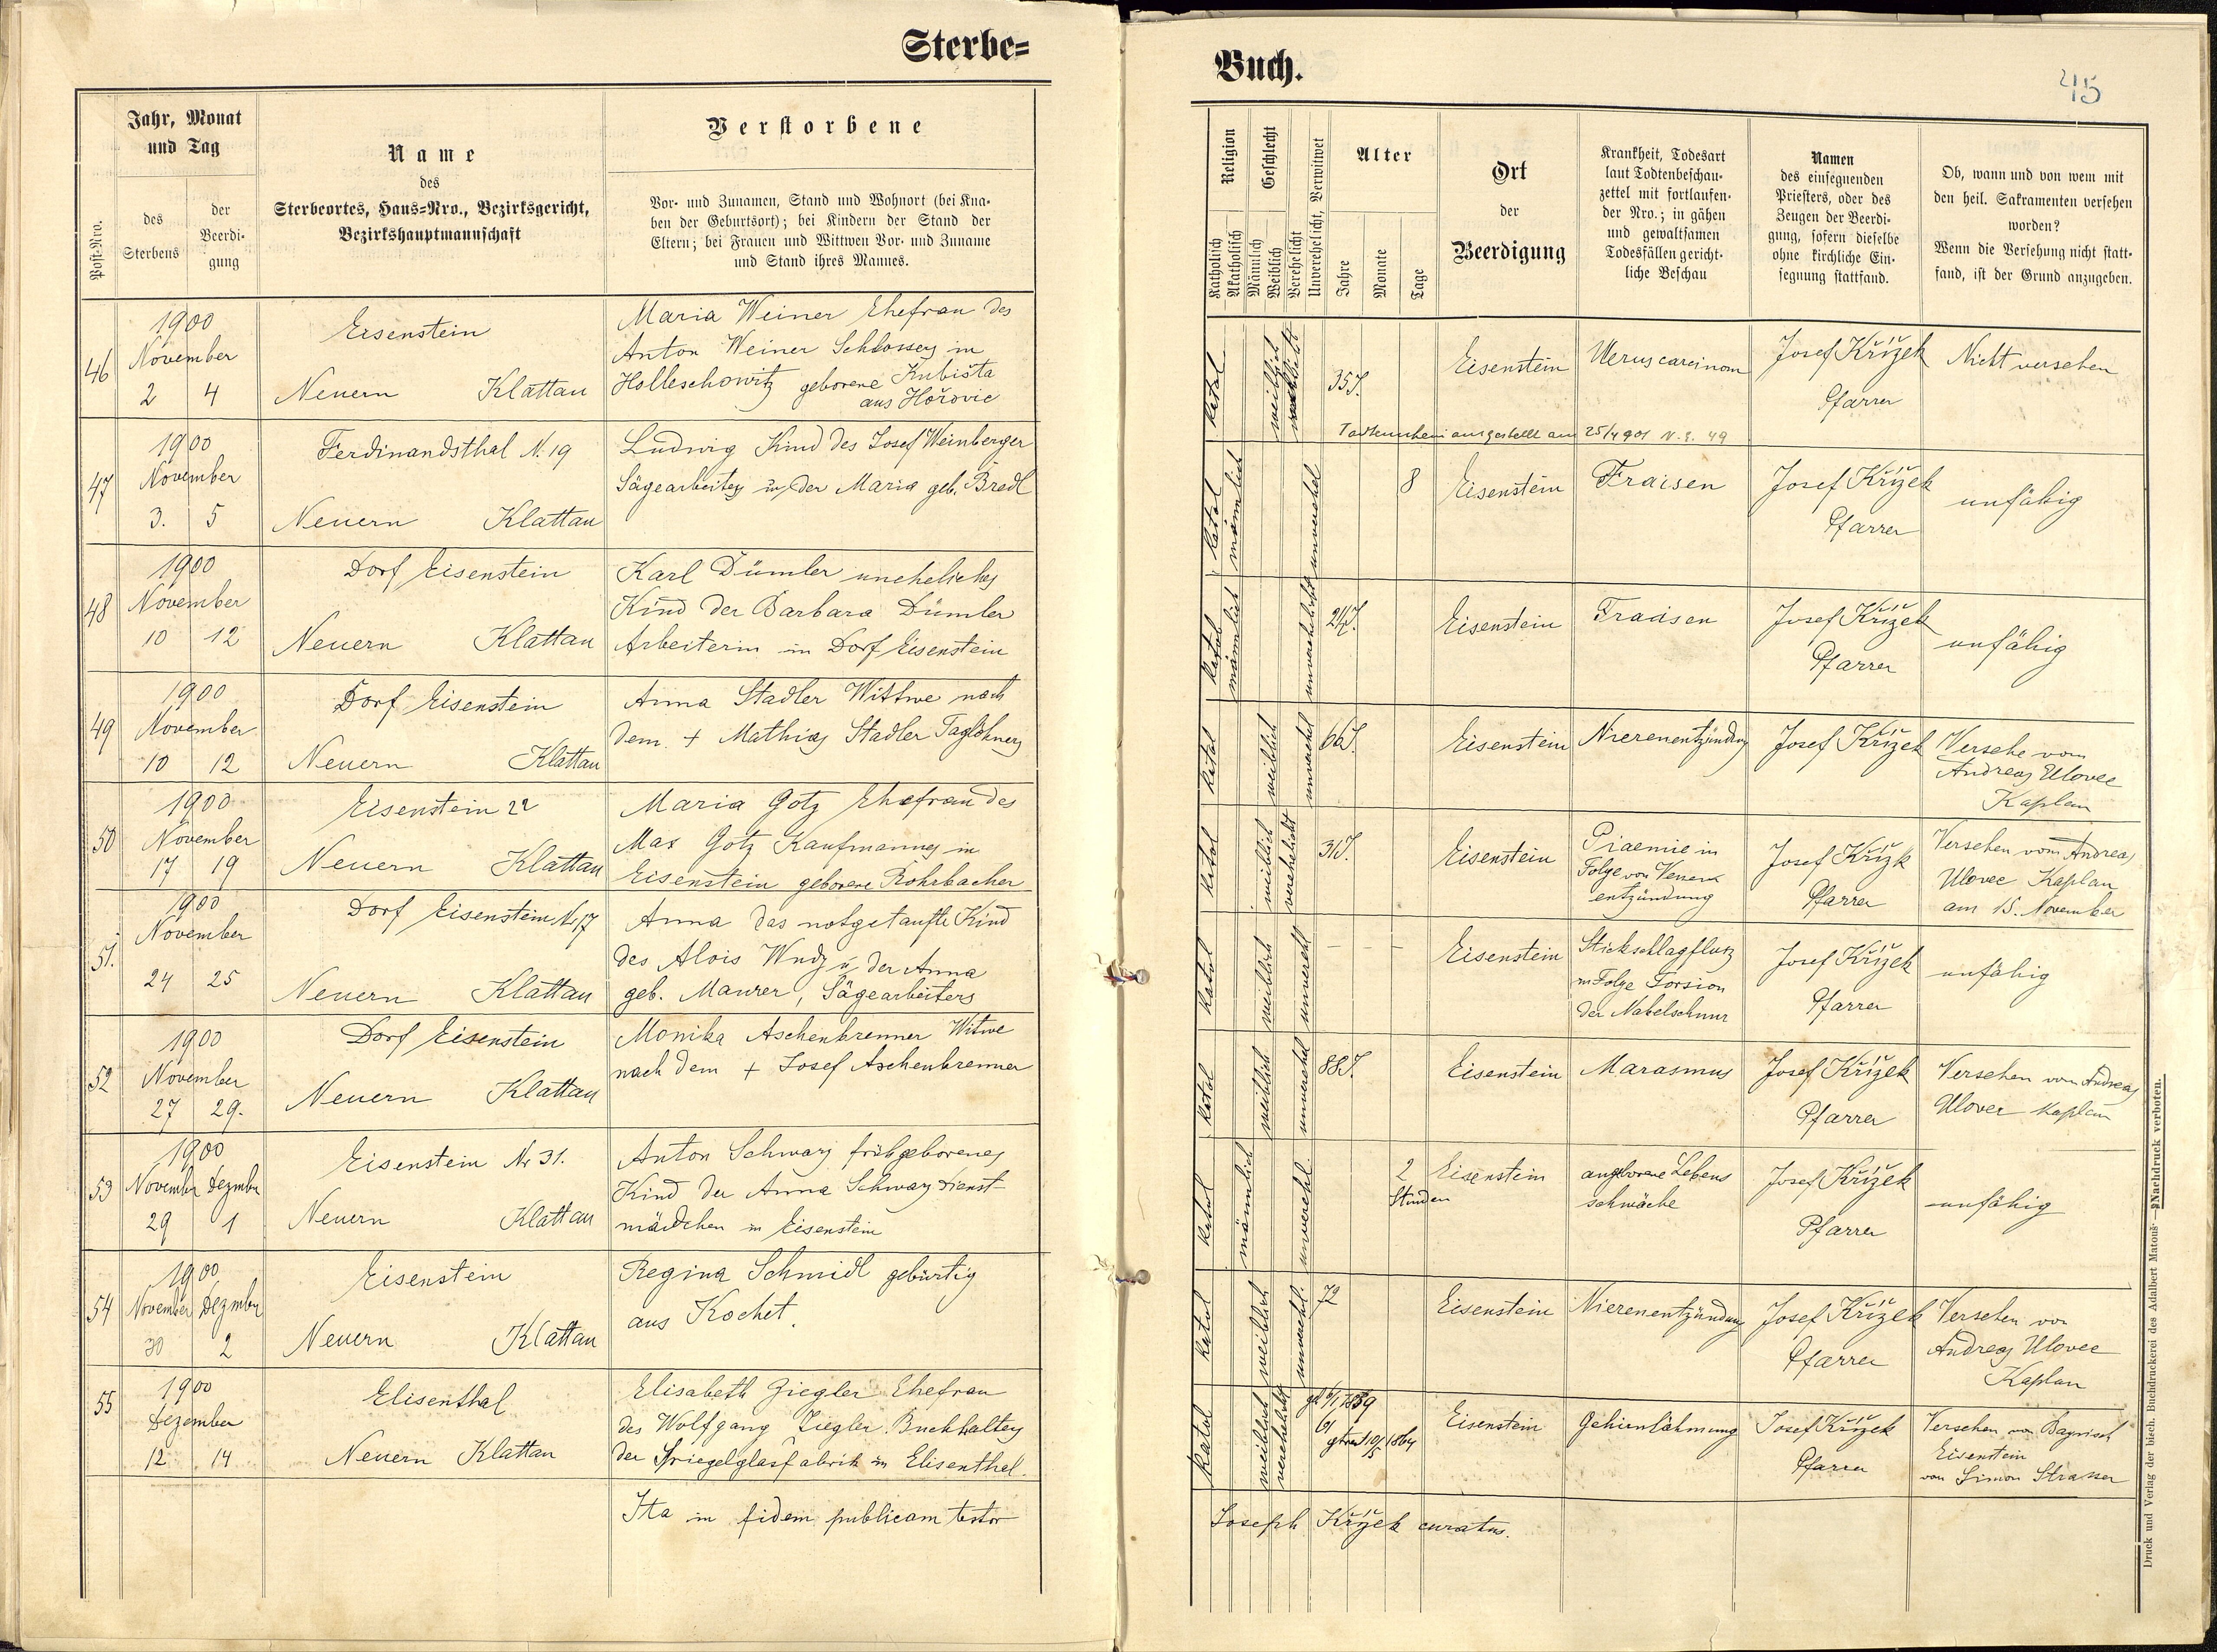 Sterbe=
Jahr, Monat
und Tag
Post-Nro.
des
Sterbens
der
Beerdi-
gung
Name
des
Sterbeortes, Haus=Nro., Bezirksgericht,
Bezirkshauptmannschaft
Verstorbene
Vor- und Zunamen, Stand und Wohnort (bei Kna-
ben der Geburtsort); bei Kindern der Stand der
Eltern; bei Frauen und Wittwen Vor- und Zuname
und Stand ihres Mannes.
46
1900
November
2 4
Eisenstein
Neuern Klattau
Maria Weiner Ehefrau des
Anton Weiner Schlossers in
Holleschowitz geborene Kubišta
aus Hořovic
47
1900
November
3. 5
Ferdinandsthal N. 19
Neuern Klattau
Ludwig Kind des Josef Weinberger
Sägearbeiters u. der Maria geb. Bredl
48
1900
November
10 12
Dorf Eisenstein
Neuern Klattau
Karl Dümler uneheliches
Kind der Barbara Dümler
Arbeiterin in Dorf Eisenstein
49
1900
November
10 12
Dorf Eisenstein
Neuern Klattau
Anna Stadler Wittwe nach
dem + Mathias Stadler Taglöhners
50
1900
November
17 19
Eisenstein 22
Neuern Klattau
Maria Götz Ehefrau des
Max Götz Kaufmannes in
Eisenstein geborene Rohrbacher
51.
1900
November
24 25
Dorf Eisenstein Nr 17
Neuern Klattau
Anna das notgetaufte Kind
des Alois Wudy u. der Anna
geb. Maurer, Sägearbeiters
52
1900
November
27 29.
Dorf Eisenstein
Neuern Klattau
Monika Aschenbrenner Witwe
nach dem + Josef Aschenbrenner
53
1900
November Dezember
29 1
Eisenstein Nr 31.
Neuern Klattau
Anton Schwarz frühgeborenes
Kind der Anna Schwarz Dienst-
mädchen in Eisenstein
54
1900
November Dezember
30 2
Eisenstein
Neuern Klattau
Regina Schmidl gebürtig
aus Kochet.
55
1900
Dezember
12 14
Elisenthal
Neuern Klattau
Elisabeth Ziegler Ehefrau
des Wolfgang Ziegler Buchhalters
der Spiegelglasfabrik in Elisenthal.
Ita in fidem publicam testor
Buch.
45
Religion
Katholisch
Akatholisch
Geschlecht
Männlich
Weiblich
Verehelicht
Unverehelicht, Verwitwet
Alter
Jahre
Monate
Tage
Ort
der
Beerdigung
Krankheit, Todesart
laut Todtenbeschau-
zettel mit fortlaufen-
der Nro.; in gähen
und gewaltsamen
Todesfällen gericht-
liche Beschau
Namen
des einsegnenden
Priesters, oder des
Zeugen der Beerdi-
gung, sofern dieselbe
ohne kirchliche Ein-
segnung stattfand.
Ob, wann und von wem mit
den heil. Sakramenten versehen
worden?
Wenn die Versehung nicht statt-
fand, ist der Grund anzugeben.
katol
weiblich
35 J.
Eisenstein
Uterus carcinom
Josef Křížek
Pfarrer
Nicht versehen
Todtenschein ausgestellt am 25/4 901 N. E. 49
katol
männlich
unverehel
8
Eisenstein
Fraisen
Josef Křížek
Pfarrer
unfähig
katol
männlich
unverehelicht
Eisenstein
Fraisen
Josef Křížek
Pfarrer
unfähig
katol
weiblich
unverehl
66 J.
Eisenstein
Nierenentzündung
Josef Křížek
Versehe vom
Andreas Ulovec
Kaplan
katol
weiblich
verehelicht
31 J.
Eisenstein
Piaemie in
Folge von Venen
entzündung
Josef Křížk
Pfarrer
Versehen vom Andreas
Ulovec Kaplan
am 15. November
katol
weiblich
unverehl
- - -
Eisenstein
Stickschlagfluss
in Folge Torsion
der Nabelschnur
Josef Křížek
Pfarrer
unfähig
katol
weiblich
unverehel
88 J.
Eisenstein
Marasmus
Josef Křížek
Pfarrer
Versehen vom Andreas
Ulovec Kaplan
katol
männlich
unverehl.
2
Stunden
Eisenstein
angeborene Lebens
schwäche
Josef Křížek
Pfarrer
unfähig
katol
weiblich
unverehl.
72
Eisenstein
Nierenentzündung
Josef Křížek
Pfarrer
Versehen von
Andreas Ulovec
Kaplan
katol
weiblich
verehelicht
61
Eisenstein
Gehirnlähmung
Josef Křížek
Pfarrer
Versehen von Bayrisch
Eisenstein
von Simon Strasser
Joseph Křížek curatus.
Druck und Verlag der bisch. Buchdruckerei des Adalbert Matouš — Nachdruck verboten.